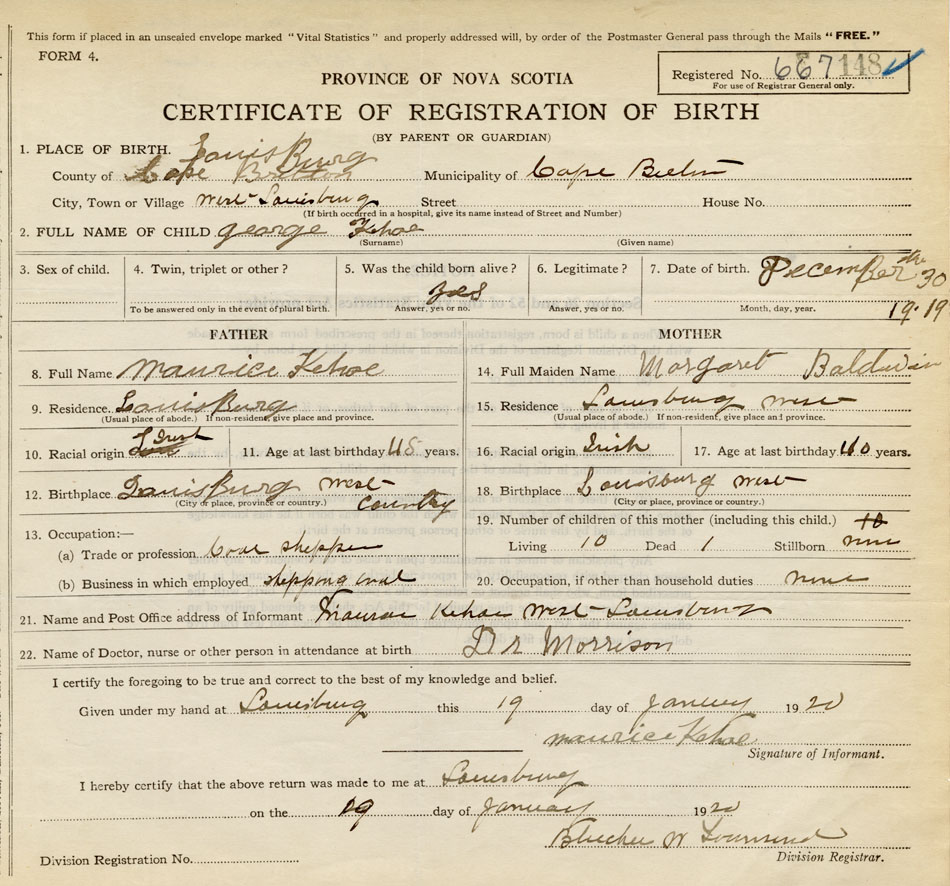 This form if placed in an unsealed envelope marked "Vital Statistics" and properly addressed will, by order of the Postmaster General pass through the Mails "FREE."
FORM 4.
Registered No. 667148
For use of Registrar General only.
PROVINCE OF NOVA SCOTIA
CERTIFICATE OF REGISTRATION OF BIRTH
(BY PARENT OR GUARDIAN)
1. PLACE OF BIRTH. Louis Burg
County of Cape Bretton Municipality of Cape Breton
City, Town or Village West Louisburg Street House No.
(If birth occurred in a hospital, give its name instead of Street and Number)
2. FULL NAME OF CHILD george Kehoe
(Surname) (Given name)
3. Sex of child. 4. Twin, triplet or other? 5. Was the child born alive? 6. Legitimate? 7. Date of birth. December the 30
yes
To be answered only in the event of plural birth. Answer, yes or no. Answer, yes or no. Month, day, year. 19.19
FATHER MOTHER
8. Full Name Maurice Kehoe 14. Full Maiden Name Margaret Baldwin
9. Residence. Louis Burg 15. Residence Louisburg west
(Usual place of abode.) If non-resident, give place and province. (Usual place of abode.) If non-resident, give place and province.
10. Racial origin Irish 11. Age at last birthday 48 years. 16. Racial origin Irish 17. Age at last birthday 40 years.
12. Birthplace Louis Burg West country 18. Birthplace Louisburg West
(City or place, province or country.) (City or place, province or country.)
13. Occupation:— 19. Number of children of this mother (including this child.) 10
(a) Trade or profession Coal shipper Living 10 Dead 1 Stillborn none
(b) Business in which employed shipping coal 20. Occupation, if other than household duties none
21. Name and Post Office address of Informant Maurice Kehoe West Louisburg
22. Name of Doctor, nurse or other person in attendance at birth Dr Morrison
I certify the foregoing to be true and correct to the best of my knowledge and belief.
Given under my hand at Louisburg this 19 day of January 1920
maurice Kehoe
Signature of Informant.
I hereby certify that the above return was made to me at Louisburg
on the 19 day of January 1920
W Townsend
Division Registration No. Division Registrar.